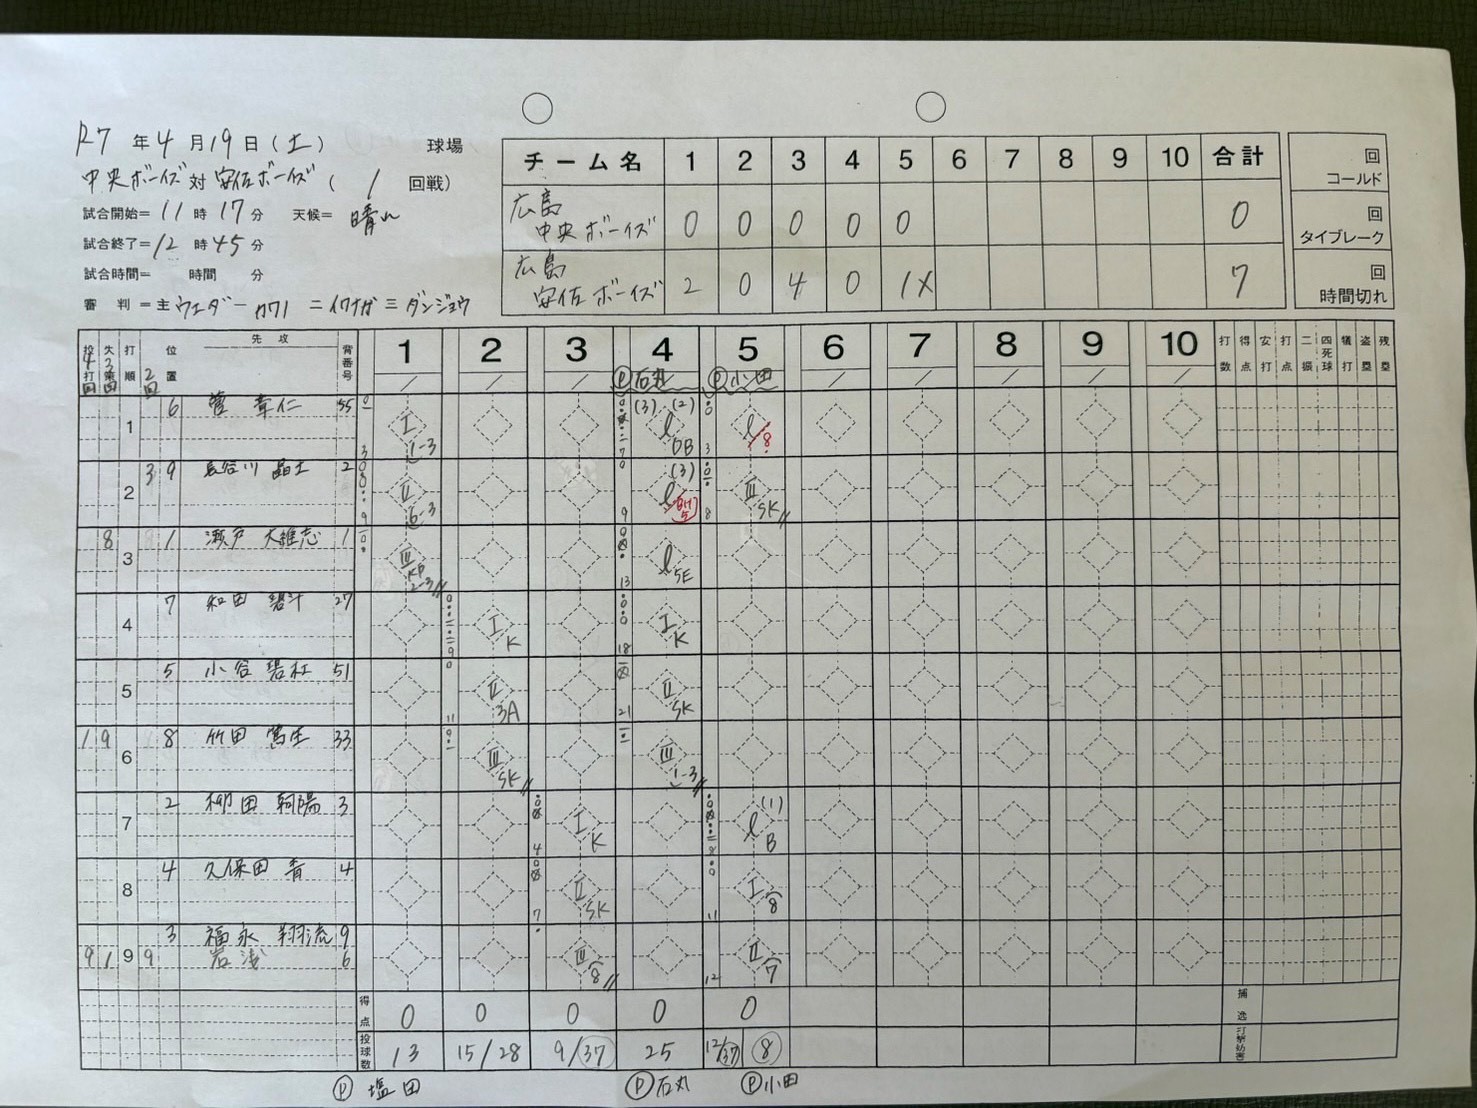 R7 年 4 月 19 日 (土) 球場
中央ボーイズ 対 安佐ボーイズ ( 1 回戦)
試合開始= 11 時 17 分 天候= 晴れ
試合終了= 12 時 45 分
試合時間= 時間 分
審 判 = 主 ウエダ 一 カワノ 二 イワナガ 三 ダンジョウ
チーム名 1 2 3 4 5 6 7 8 9 10 合計
広島中央ボーイズ 0 0 0 0 0 0
広島安佐ボーイズ 2 0 4 0 1X 7
回
コールド
回
タイブレーク
回
時間切れ
打順 位置 先攻 背番号 1 2 3 4 5 6 7 8 9 10 打数 得点 安打 打点 三振 四死球 犠打 盗塁 残塁
P石丸 P小田
1 6 菅 章仁 55 I 1-3 (3) (2) l DB l 8
2 3 9 長谷川 晶士 2 II 6-3 (3) l BH 5 III SK
8 3 1 瀬戸 大雄志 1 III 2-3 l 5E
4 7 和田 碧斗 27 I K I K
5 5 小谷 碧杜 51 II 3A II SK
1 9 6 8 竹田 篤生 33 III SK III 1-3
7 2 柳田 朝陽 3 I K (1) l B
8 4 久保田 青 4 II SK I 8
3 福永 翔流 9
9 1 9 9 岩浅 6 III 8 II 7
得点 0 0 0 0 0 捕逸
投球数 13 15/28 9/37 25 12/37 8 打撃妨害
P 塩田 P石丸 P小田